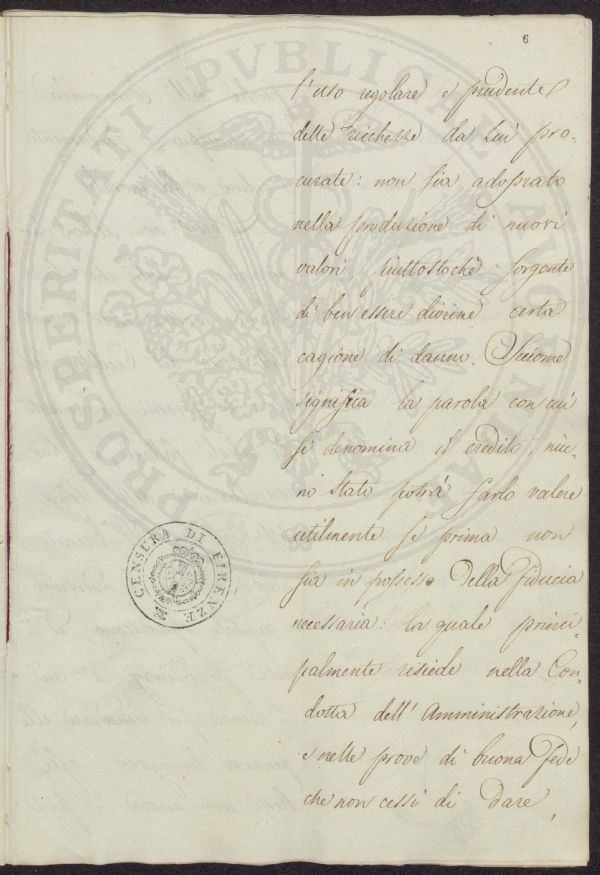 6
l'uso regolare e prudente
delle ricchezze da lui pro-
curate: non sia adoprato
nella produzione di nuovi
valori, piuttostochè sorgente
di ben essere diviene certa
cagione di danno. Siccome
significa la parola con cui
si denomina il credito, niu-
no stato potrà farlo valere
utilmente se prima non
sia in possesso della fiducia
necessaria: la quale princi-
palmente risiede nella Con-
dotta dell'Amministrazione,
e nelle prove di buona fede
che non cessi di dare,
CENSURA DI FIRENZE
PROSPERITATI PVBLICAE